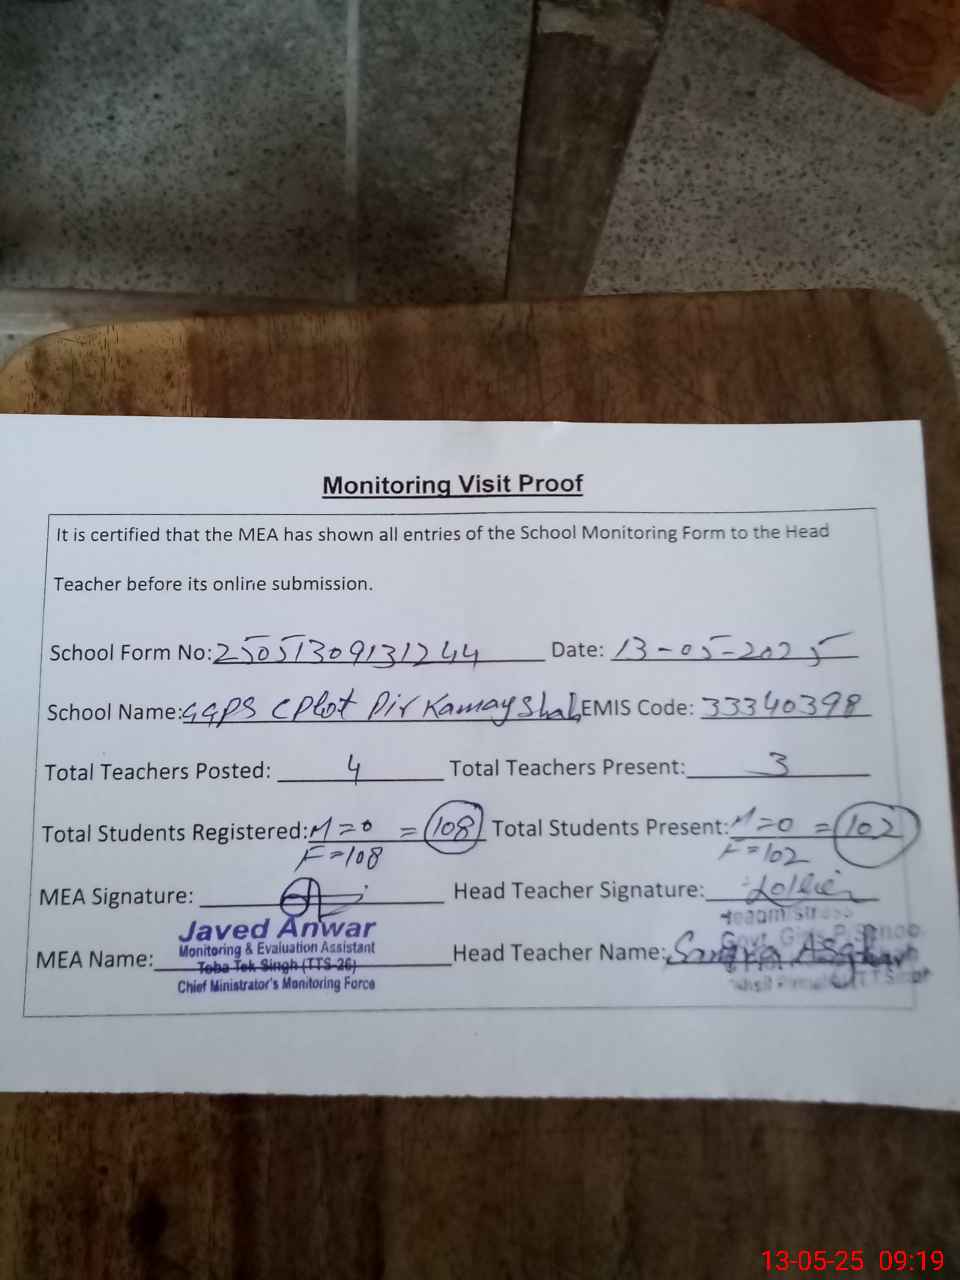 Monitoring Visit Proof
It is certified that the MEA has shown all entries of the School Monitoring Form to the Head
Teacher before its online submission.
School Form No: 25051309131244 Date: 13-05-2025
School Name: GGPS C Plot Pir Kamay Shah EMIS Code: 33340398
Total Teachers Posted: 4 Total Teachers Present: 3
Total Students Registered: M=0 = 108 Total Students Present: M=0 = 102
F=108 F=102
MEA Signature: Head Teacher Signature:
Javed Anwar
Monitoring & Evaluation Assistant
MEA Name: Head Teacher Name: Asghar
Toba Tek Singh (TTS-26)
Chief Minister's Monitoring Force
13-05-25 09:19